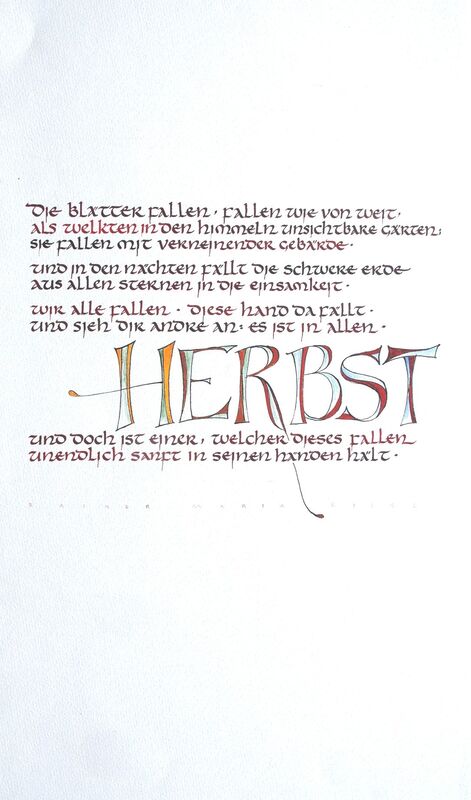 die blätter fallen · fallen wie von weit ·
als welkten in den himmeln unsichtbare gärten;
sie fallen mit verneinender gebärde ·
und in den nächten fällt die schwere erde
aus allen sternen in die einsamkeit ·
wir alle fallen · diese hand da fällt ·
und sieh dir andre an: es ist in allen ·
HERBST
und doch ist einer, welcher dieses fallen
unendlich sanft in seinen händen hält ·
RAINER MARIA RILKE